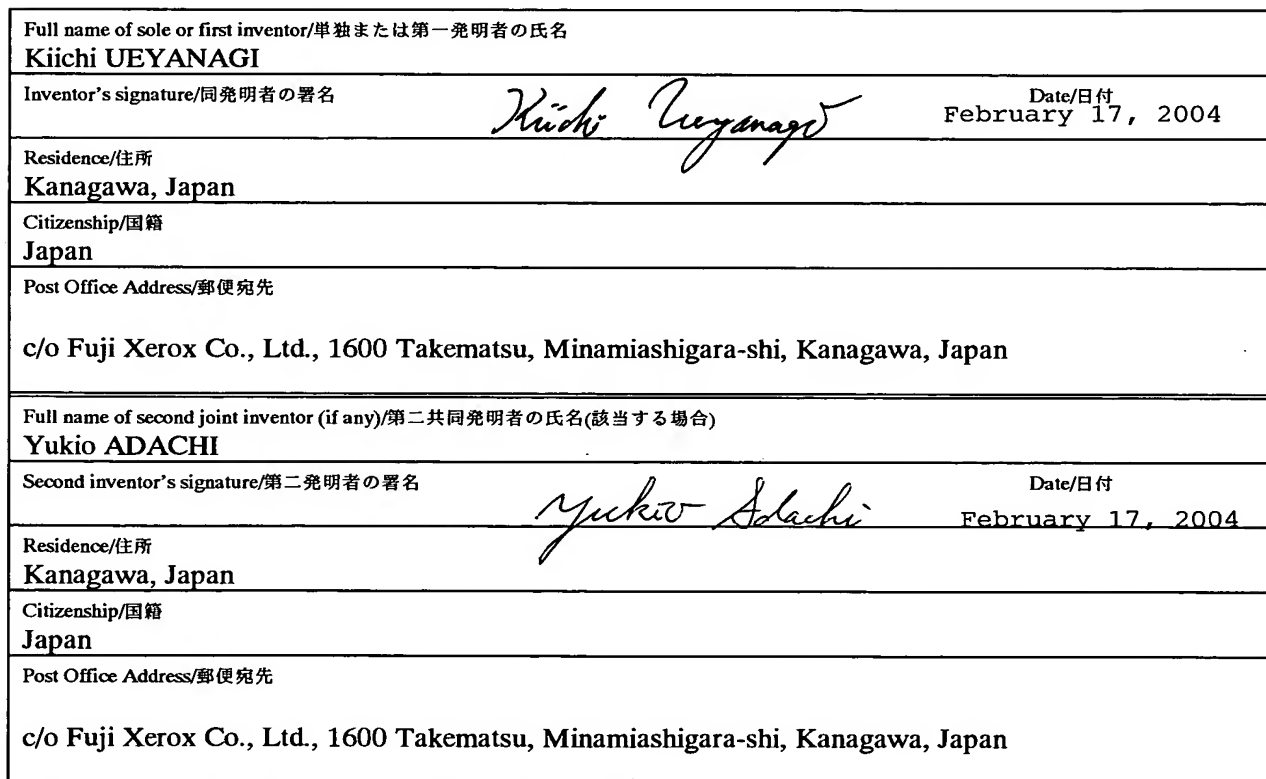 Full name of sole or first inventor/単独または第一発明者の氏名
Kiichi UEYANAGI
Inventor's signature/同発明者の署名
Kiichi Ueyanagi
Date/日付
February 17, 2004
Residence/住所
Kanagawa, Japan
Citizenship/国籍
Japan
Post Office Address/郵便宛先
c/o Fuji Xerox Co., Ltd., 1600 Takematsu, Minamiashigara-shi, Kanagawa, Japan
Full name of second joint inventor (if any)/第二共同発明者の氏名(該当する場合)
Yukio ADACHI
Second inventor's signature/第二発明者の署名
Yukio Adachi
Date/日付
February 17, 2004
Residence/住所
Kanagawa, Japan
Citizenship/国籍
Japan
Post Office Address/郵便宛先
c/o Fuji Xerox Co., Ltd., 1600 Takematsu, Minamiashigara-shi, Kanagawa, Japan